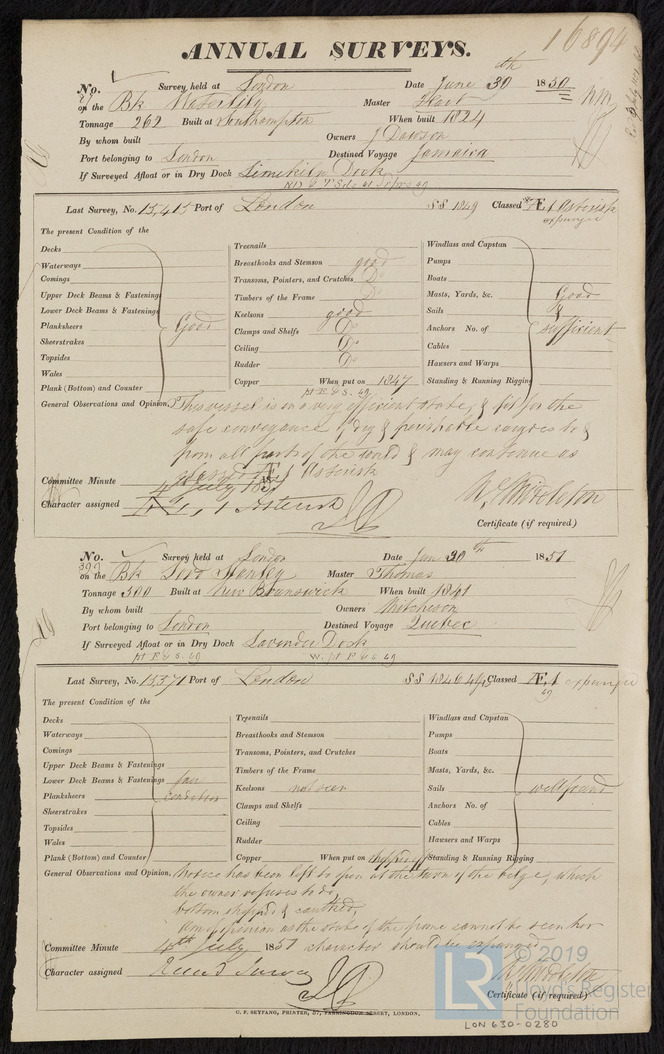 16894
ANNUAL SURVEYS.
No. Survey held at London Date June 30th 1850
on the Bk Master Hart
Tonnage 262 Built at Southampton When built 1824
By whom built Owners J Dawson
Port belonging to London Destined Voyage Jamaica
If Surveyed Afloat or in Dry Dock Limekiln Dock
Last Survey, No. 15,415 Port of London SS 1849 Classed Æ 1 Asterisk
expunged
The present Condition of the
Decks
Waterways
Comings
Upper Deck Beams & Fastenings
Lower Deck Beams & Fastenings
Planksheers
Sheerstrakes
Topsides
Wales
Plank (Bottom) and Counter
Good
Treenails
Breasthooks and Stemson good
Transoms, Pointers, and Crutches Do
Timbers of the Frame Do
Keelsons good
Clamps and Shelfs Do
Ceiling Do
Rudder Do
Copper When put on 1847
Windlass and Capstan
Pumps
Boats
Masts, Yards, &c. Good
Sails &
Anchors No. of sufficient
Cables
Hawsers and Warps
Standing & Running Rigging
General Observations and Opinion, This vessel is in a very efficient state, & fit for the
safe conveyance of dry & perishable cargoes to &
from all parts of the world & may continue as
classed Æ 1 Asterisk
Committee Minute 4 July 185
Character assigned Æ 1, Asterisk
Certificate (if required)
No. 399 Survey held at London Date Jun 30th 1851
on the Bk Lord Stanley Master Thomas
Tonnage 500 Built at New Brunswick When built 1841
By whom built Owners Mitcheson
Port belonging to London Destined Voyage Quebec
If Surveyed Afloat or in Dry Dock Lavender Dock
Last Survey, No. 15,371 Port of London SS 1846 Classed Æ 1 expunged
49
The present Condition of the
Decks
Waterways
Comings
Upper Deck Beams & Fastenings
Lower Deck Beams & Fastenings
Planksheers
Sheerstrakes
Topsides
Wales
Plank (Bottom) and Counter
fair
condition
Treenails
Breasthooks and Stemson
Transoms, Pointers, and Crutches
Timbers of the Frame
Keelsons not seen
Clamps and Shelfs
Ceiling
Rudder
Copper When put on stripped off
Windlass and Capstan
Pumps
Boats
Masts, Yards, &c.
Sails well found
Anchors No. of
Cables
Hawsers and Warps
Standing & Running Rigging
General Observations and Opinion, Notice has been left to open at the turn of the bilge, which
the owner refuses to do,
bottom stripped & caulked,
opinion as the state of the frame cannot be seen her
character should be expunged
Committee Minute 4th July 1851
Character assigned
Certificate (if required)
C. F. SEYFANG, PRINTER, 57, FARRINGDON STREET, LONDON.
LON 630-0280
© 2019
LR
Lloyd's Register
Foundation